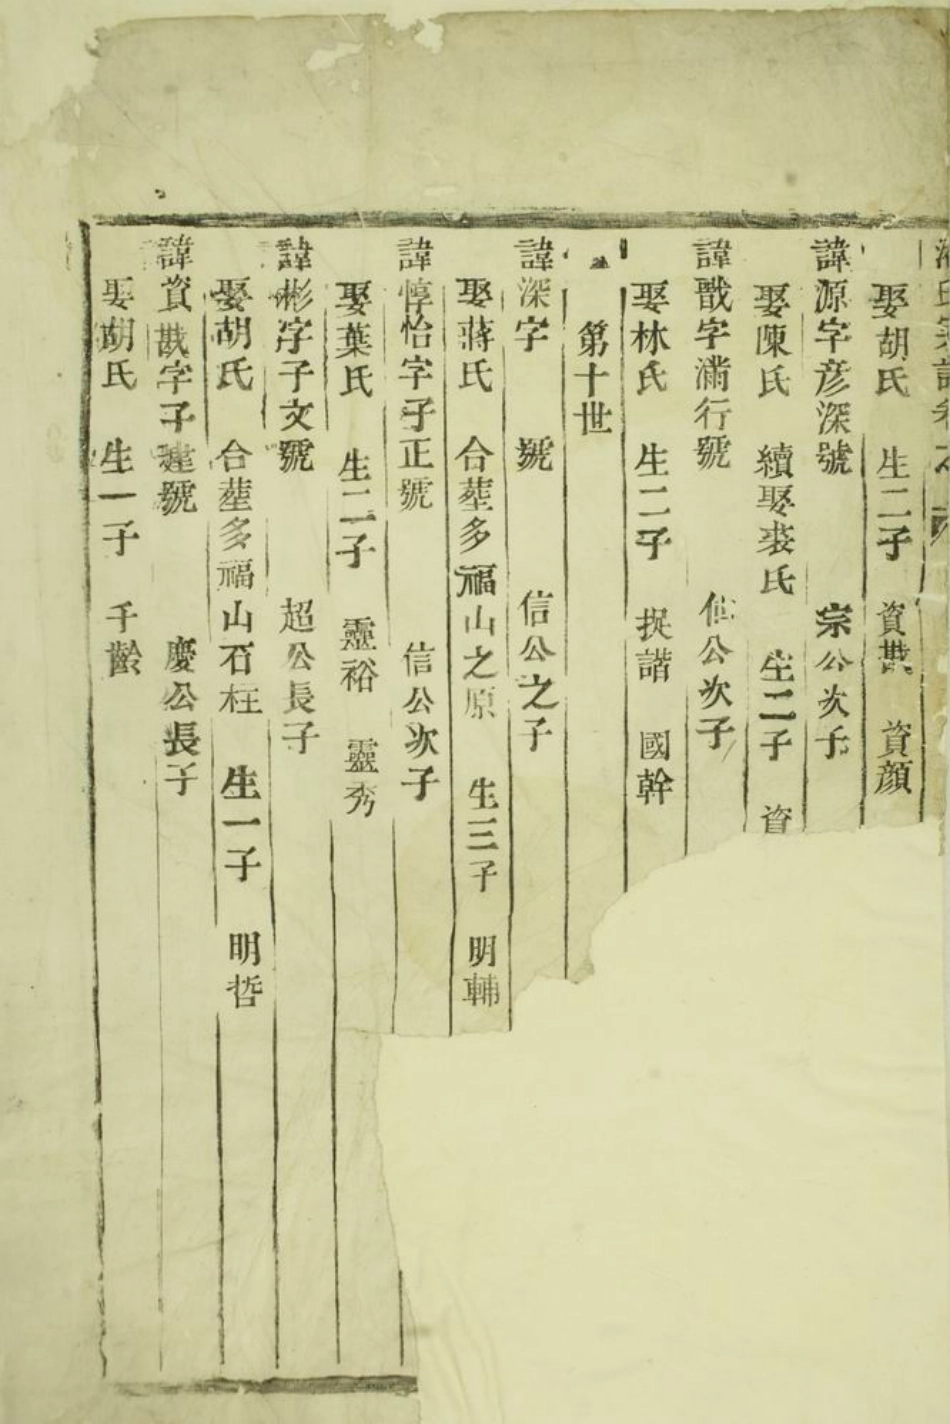 氏宗譜卷之
娶胡氏 生二子 資戡 資顔
諱源字彦深號 宗公次子
娶陳氏 續娶裘氏 生二子 資
諱戩字滿行號 公次子
娶林氏 生二子 振諧 國幹
第十世
諱深字 號 信公之子
娶蔣氏 合塟多福山之原 生三子 明輔
諱惇怡字子正號 信公次子
娶葉氏 生二子 靈裕 靈秀
諱彬字子文號 超公長子
娶胡氏 合塟多福山石枉 生一子 明哲
諱資戡字子建號 慶公長子
娶胡氏 生一子 千齡